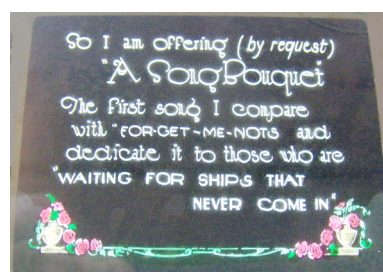 So I am offering (by request)
"A Song Bouquet"
The first song I compare
with "FOR-GET-ME-NOTS and
dedicate it to those who are
"WAITING FOR SHIPS THAT
NEVER COME IN"